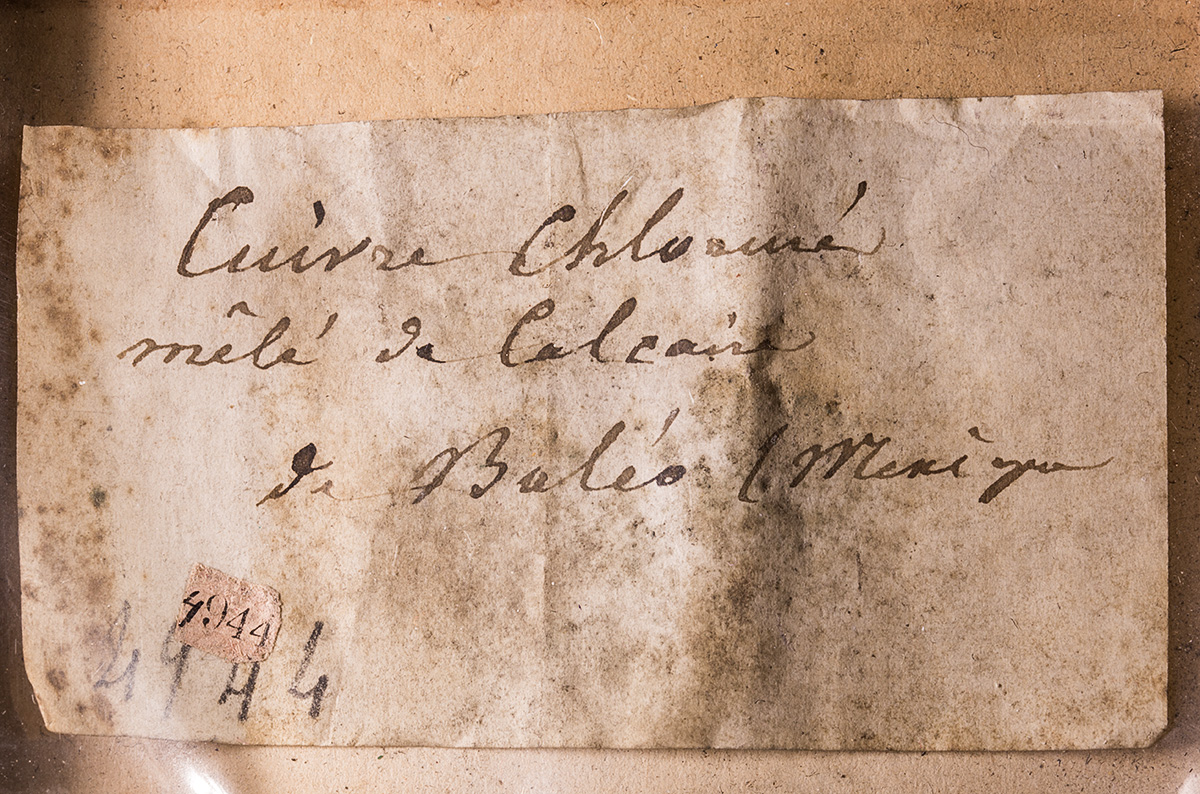 Cuivre Chloruré
mêlé de Calcaire
de Baléo (Mexique
4944
4944